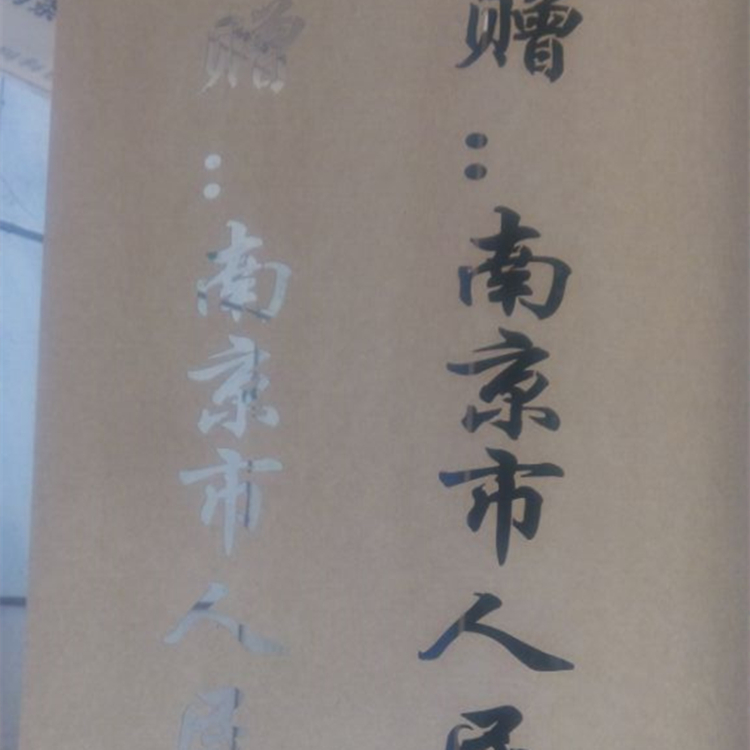 赠:南京市人民
赠:南京市人民